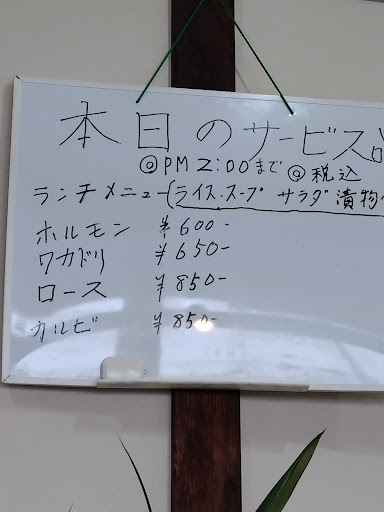 本日のサービス品
◎PM2:00まで ◎税込
ランチメニュー(ライス.スープ サラダ 漬物
ホルモン ¥600-
ワカドリ ¥650-
ロース ¥850-
カルビ ¥850-